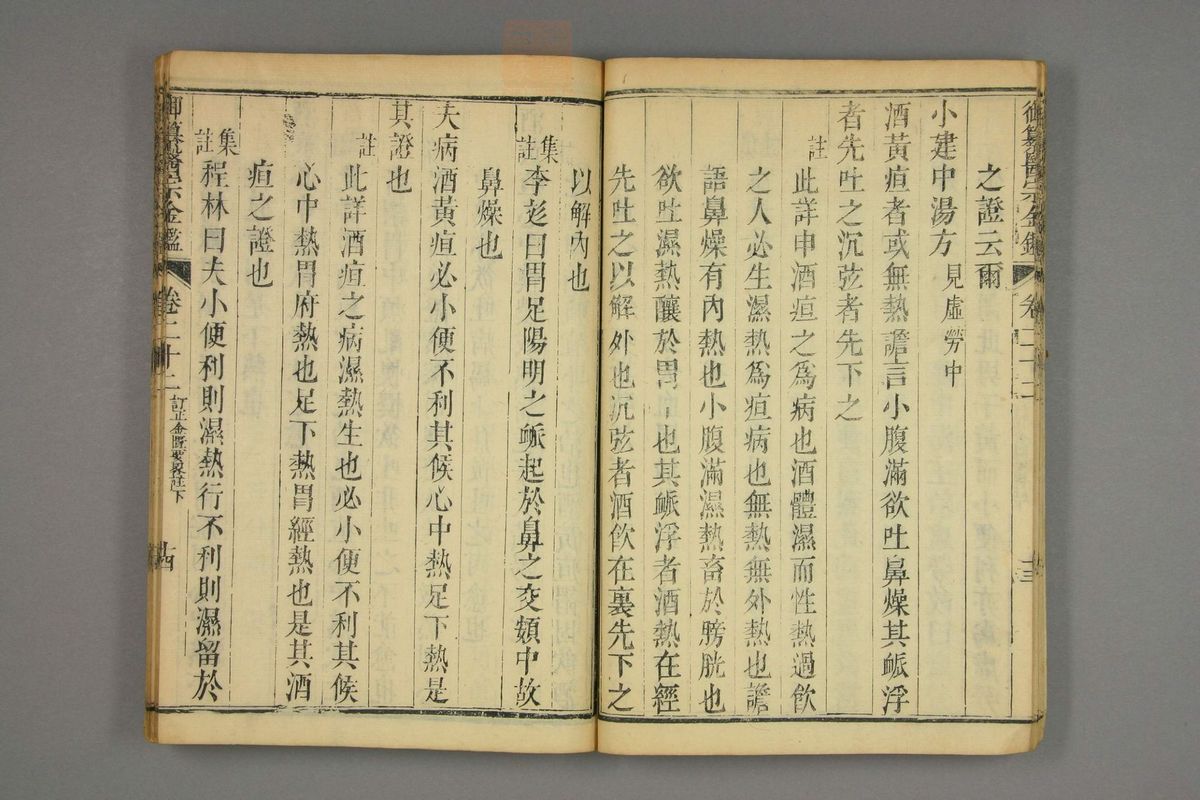 御纂醫宗金鑑 卷二十二 十三
之證云爾
小建中湯方 見虛勞中
酒黃疸者或無熱譫言小腹滿欲吐鼻燥其脈浮
者先吐之沉弦者先下之
註 此詳申酒疸之為病也酒體濕而性熱過飲
之人必生濕熱為疸病也無熱無外熱也譫
語鼻燥有內熱也小腹滿濕熱畜於膀胱也
欲吐濕熱釀於胃中也其脈浮者酒熱在經
先吐之以解外也沉弦者酒飲在裏先下之
以解內也
集註 李彣曰胃足陽明之脈起於鼻之交頞中故
鼻燥也
夫病酒黃疸必小便不利其候心中熱足下熱是
其證也
註 此詳酒疸之病濕熱生也必小便不利其候
心中熱胃府熱也足下熱胃經熱也是其酒
疸之證也
集註 程林曰夫小便利則濕熱行不利則濕留於
御纂醫宗金鑑 卷二十二 訂正金匱要畧註下 十四